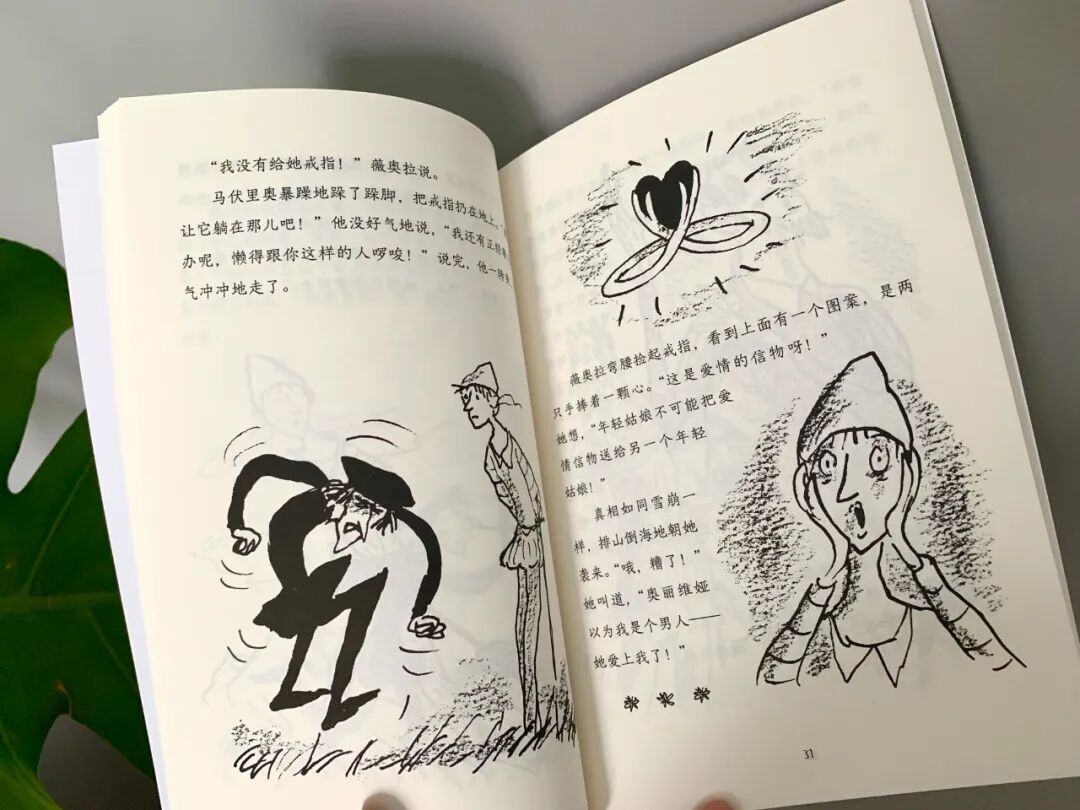 “我没有给她戒指！”薇奥拉说。
马伏里奥暴躁地跺了跺脚，把戒指扔在地上，
让它躺在那儿吧！”他没好气地说，“我还有正经
办呢，懒得跟你这样的人啰唆！”说完，他一转
气冲冲地走了。
薇奥拉弯腰捡起戒指，看到上面有一个图案，是两
只手捧着一颗心。“这是爱情的信物呀！”
她想，“年轻姑娘不可能把爱
情信物送给另一个年轻
姑娘！”
真相如同雪崩一
样，排山倒海地朝她
袭来。“哦，糟了！”
她叫道，“奥丽维娅
以为我是个男人——
她爱上我了！”
31